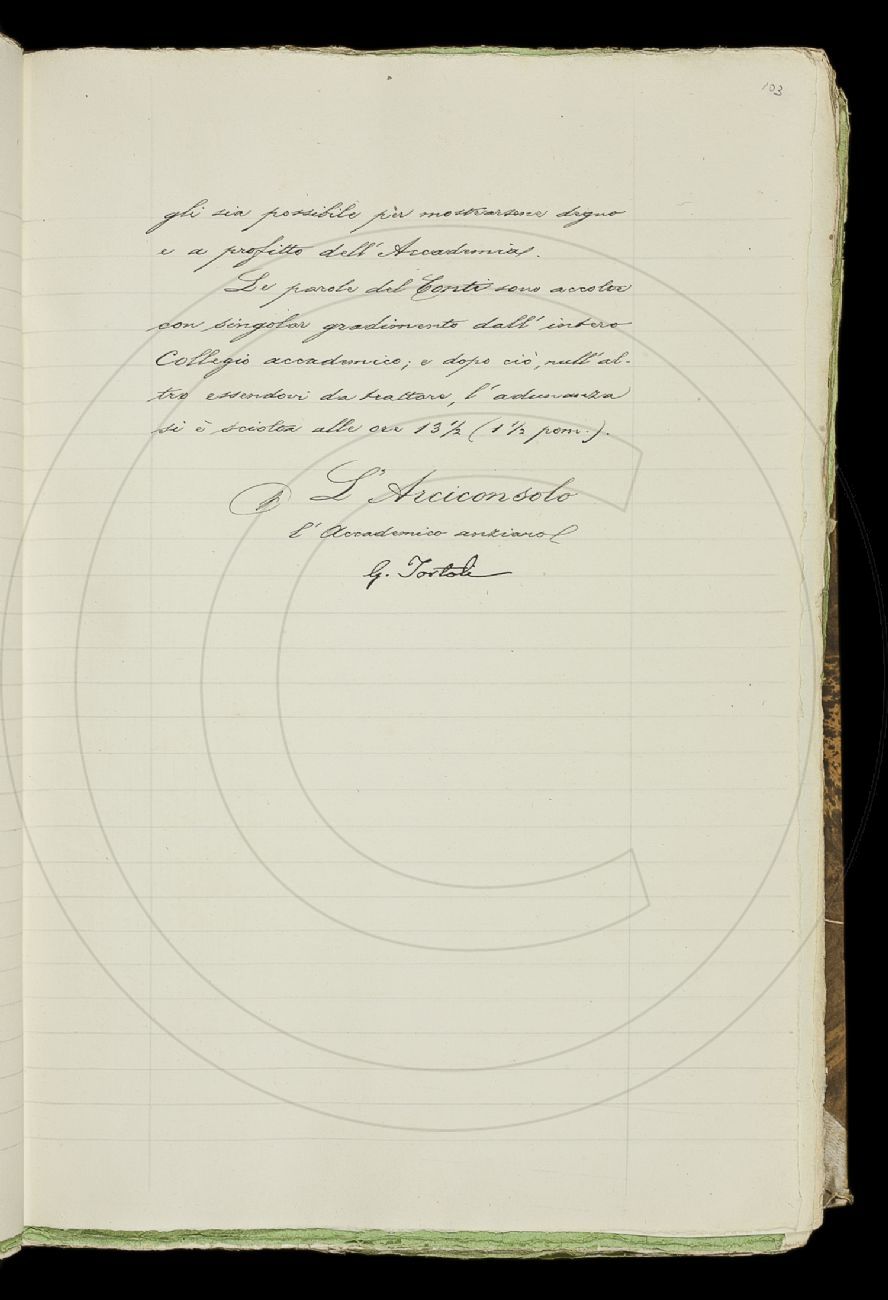 103
gli sia possibile per mostrarsene degno
e a profitto dell'Accademia.
Le parole del Conti sono accolte
con singolar gradimento dall'intero
Collegio accademico; e dopo ciò, null'al-
tro essendovi da trattare, l'adunanza
si è sciolta alle ore 13 ½ (1 ½ pom.).
L'Arciconsolo
l'Accademico anziano
G. Tortoli